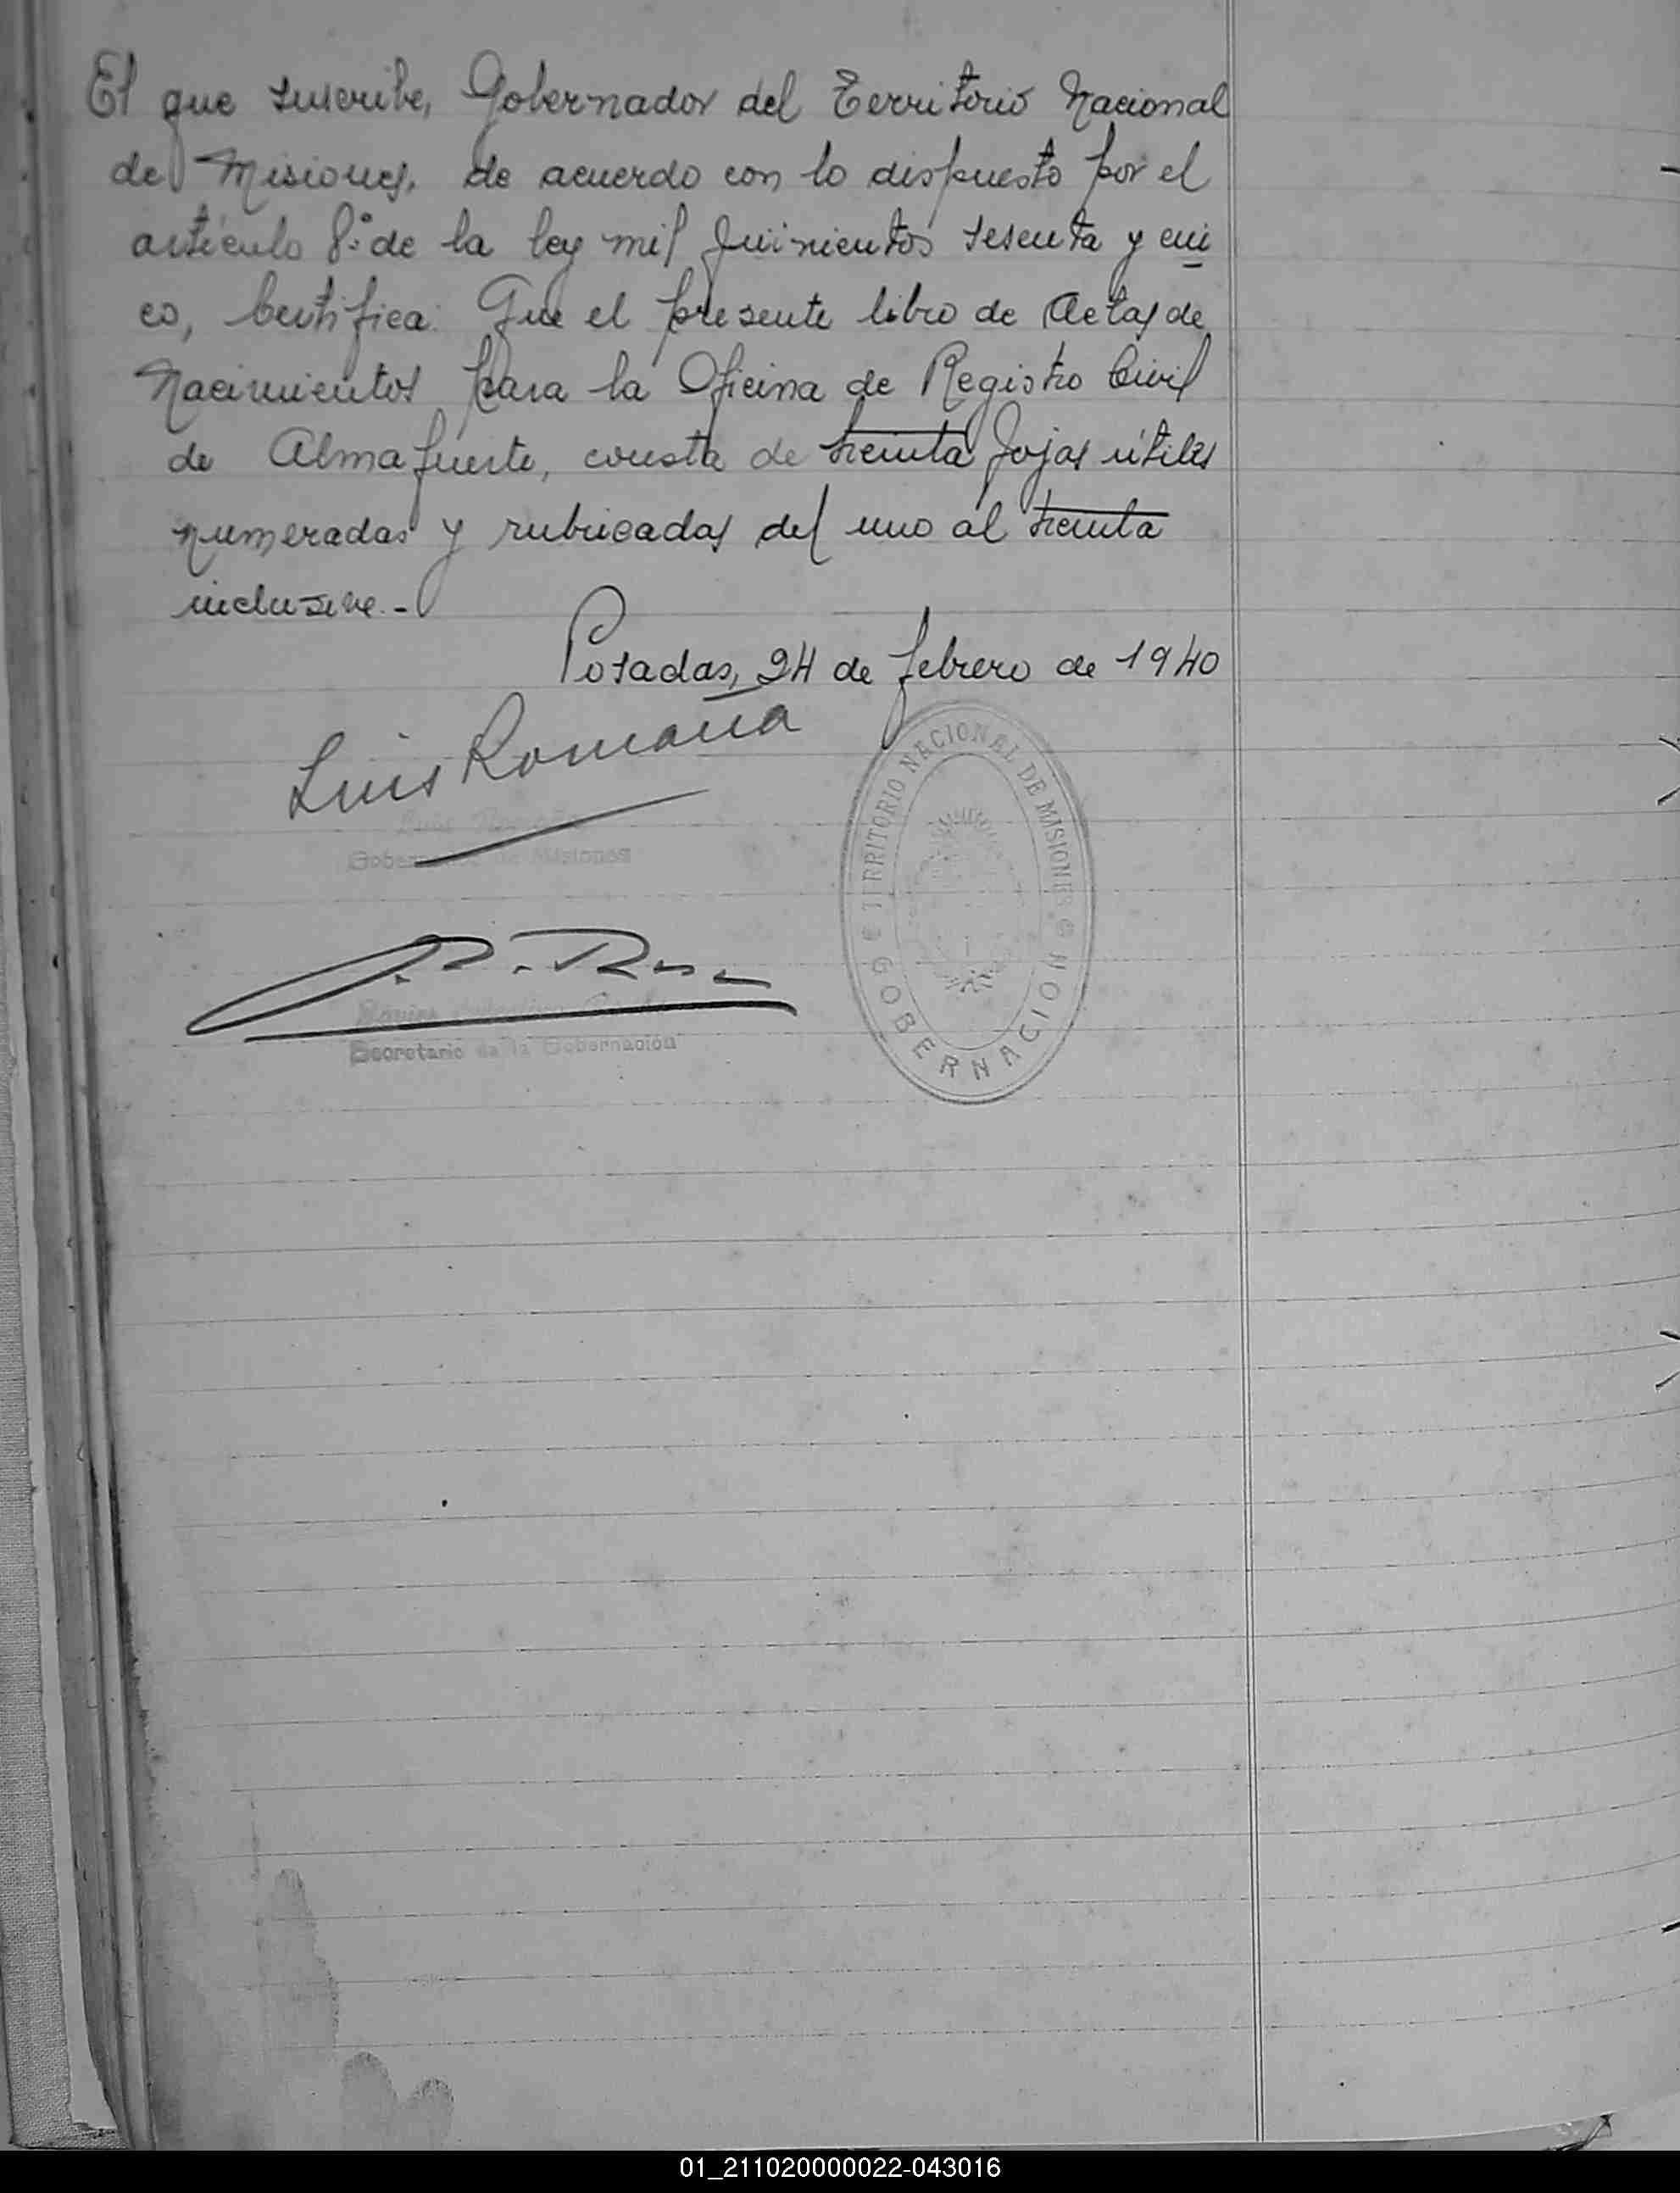 El que suscribe, Gobernador del Territorio Nacional
de Misiones, de acuerdo con lo dispuesto por el
artículo 8º de la ley mil quinientos sesenta y cin
co, Certifica: Que el presente libro de Actas de
Nacimientos para la Oficina de Registro Civil
de Almafuerte, consta de treinta fojas útiles
numeradas y rubricadas del uno al treinta
inclusive.-
Posadas, 24 de febrero de 1940
Luis Romaña
Luis Romaña
Gobernador de Misiones
Secretario de la Gobernación
TERRITORIO NACIONAL DE MISIONES
GOBERNACION
01_211020000022-043016